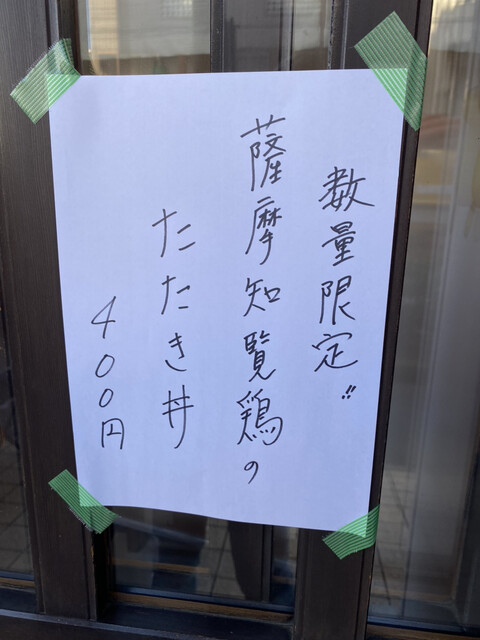 数量限定!!
薩摩知覧鶏の
たたき丼
400円